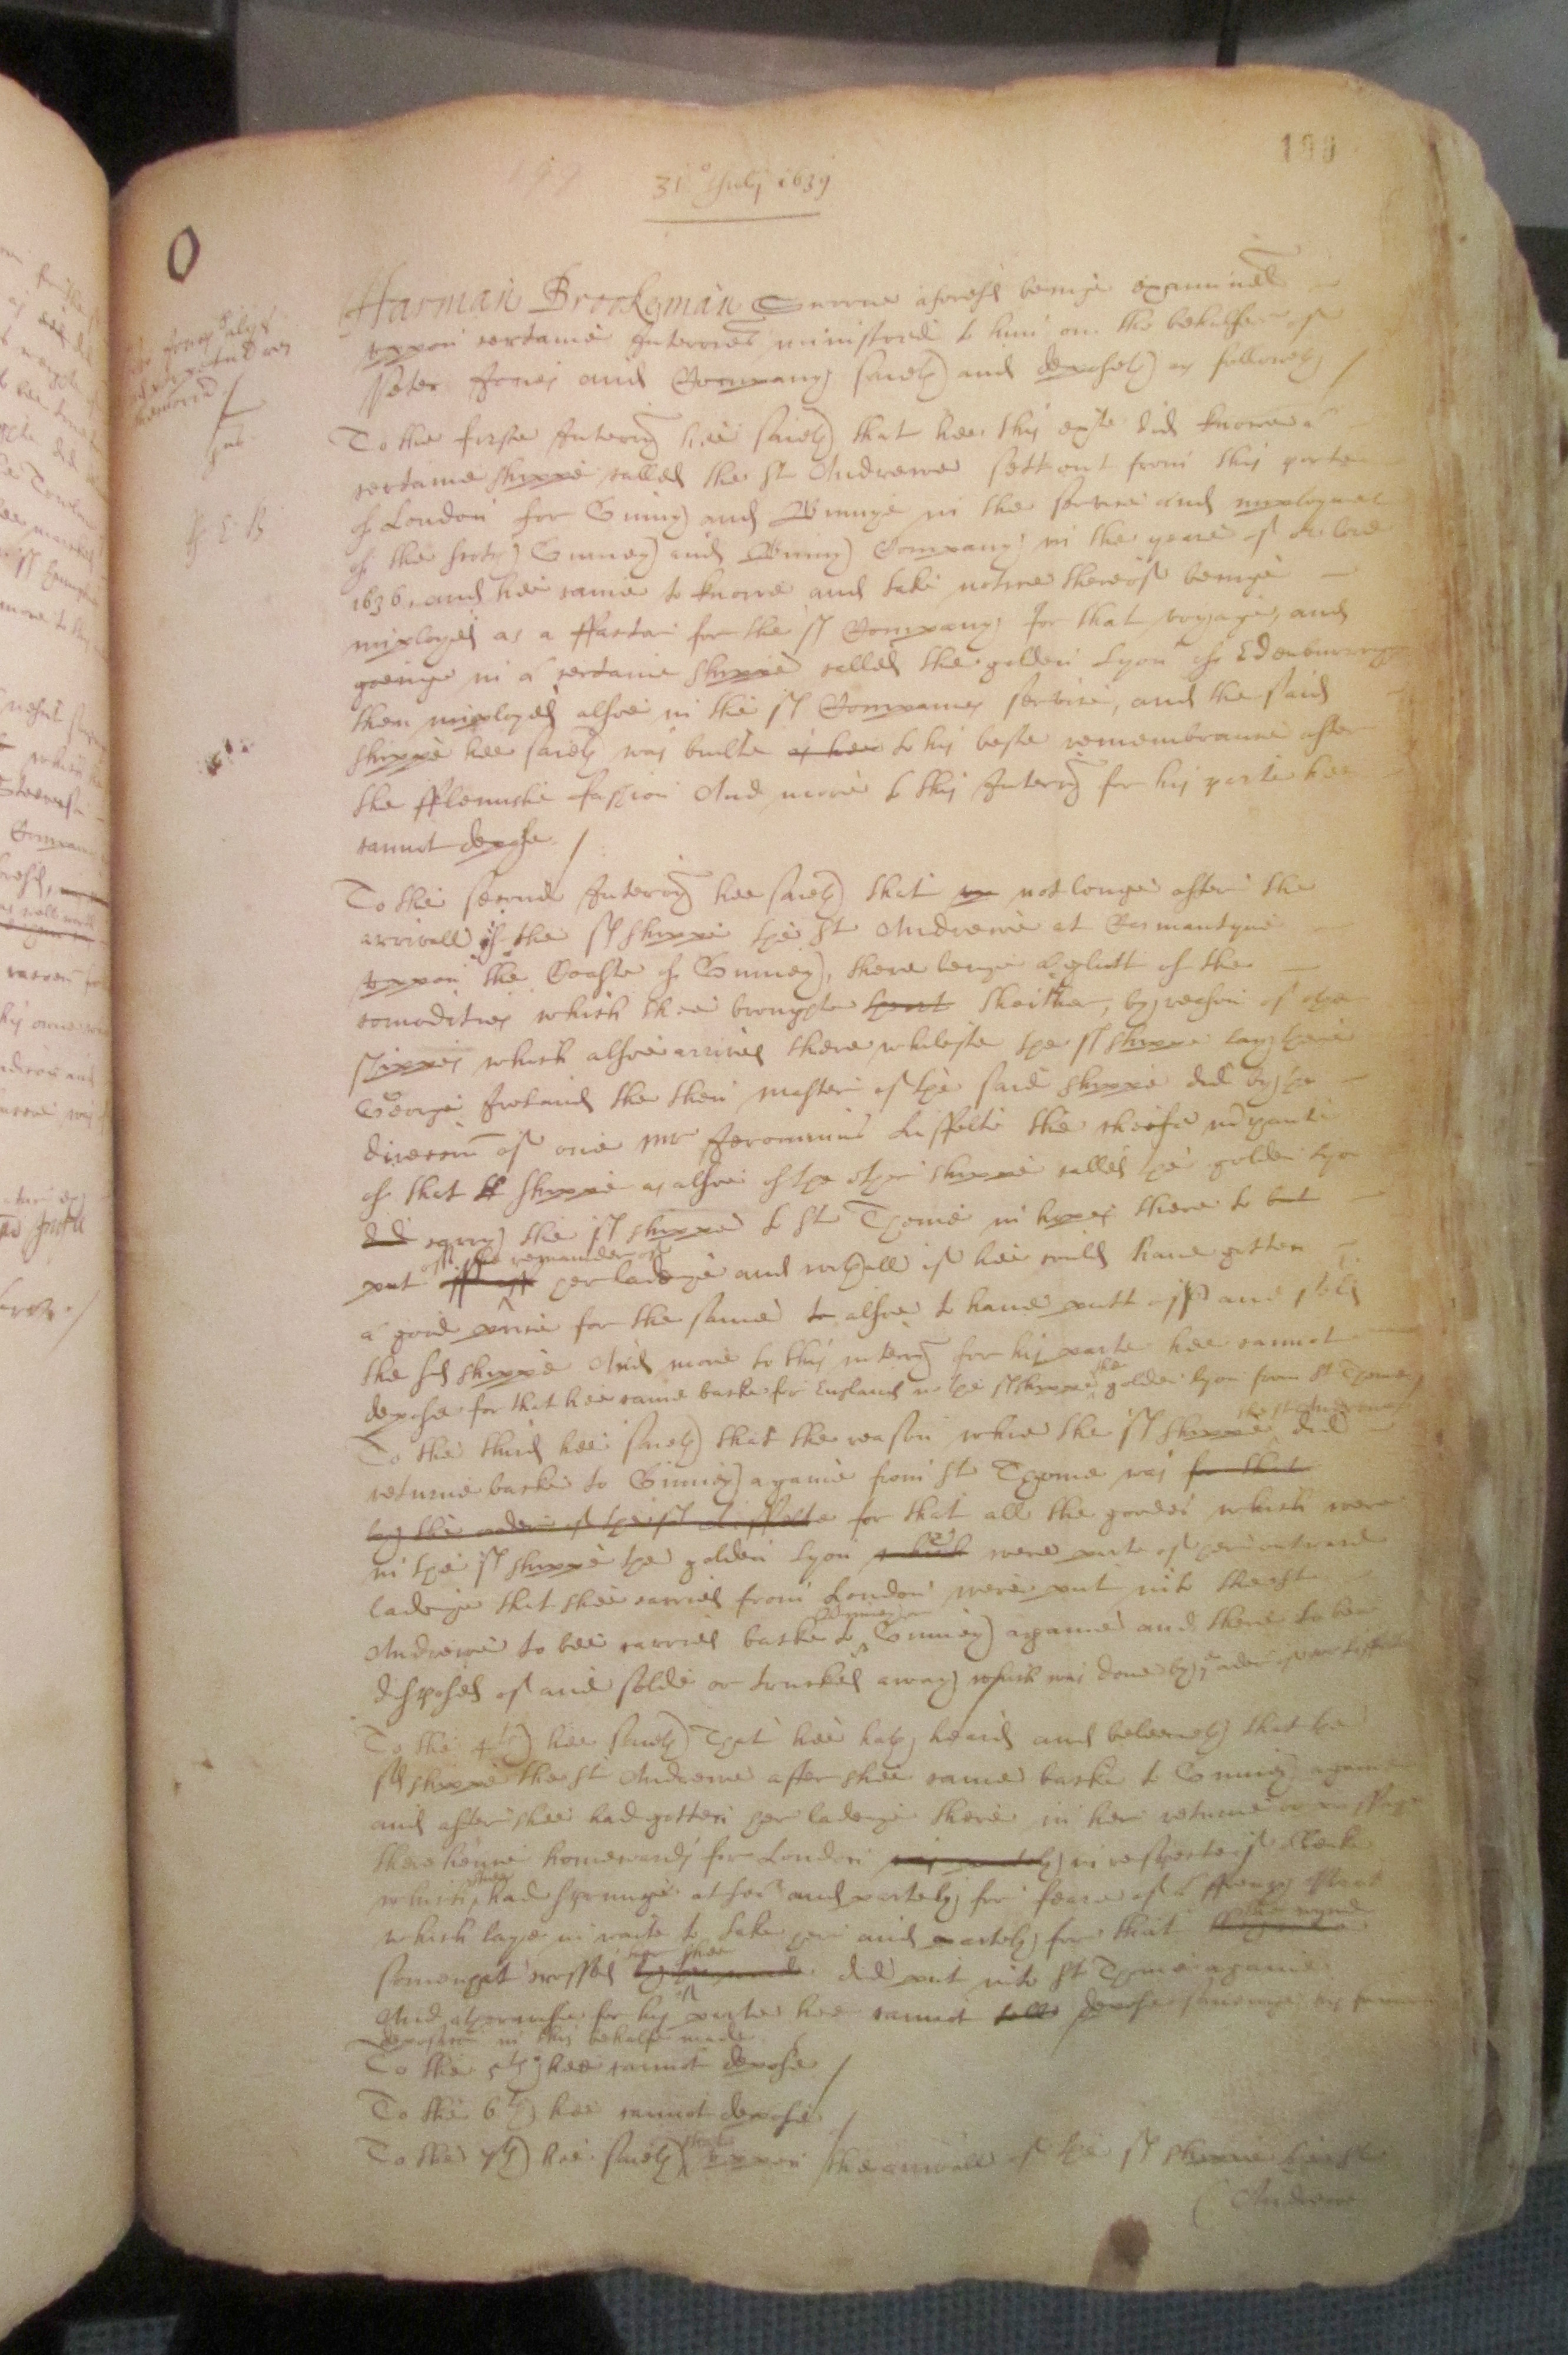 199
31o July 1639
Harman Brookman Surrne aforesd beinge examined
uppon certaine Interries ministred to him on the behalfe of
Peter Jones and Company saieth and deposeth as followeth /
To the firste Interry hee saieth that hee this exte did knowe a
certaine shippe called the St Andrewe sett out from this porte
of London for Ginny and Binnye in the service and imploymet
of the Scotch Guiney and Binny Company in the yeare of or lord
1636, and hee came to knowe and take notice thereof beinge
imployed as a ffactor for the sd Company for that voyage, and
goeinge in a certaine shippe called the golden Lyon of Edenburrough
then imployed alsoe in the sd Companies service, and the said
shippe hee saieth was builte as hee to his beste remembrance after
the fflemishe fashion And more to this Interry for his parte hee
cannot depose. /
To the second Interry hee saieth that up not longe after the
arrivall of the sd shippe the St Andrewe at Cormantyne
uppon the Coaste of Guiney, there beinge a glutt of the
comodities which shee broughte thither, by reason of other
shippes which alsoe arrived there whileste the sd shippe lay there
George Ireland the then master of the said shippe did by the
direccon of one Mr Jerominus Liffelte the cheefe
of that sd shippe as alsoe of the other shippe called the golden Lyon
did carry the sd shippe to St Thome in hopes there to but
put off the remainder of her ladeinge and withall if hee could have gotten
a good price for the same to alsoe to have putt off and sold
the sd shippe And more to this interry for his parte hee cannot
depose for that hee came backe for England in the sd shippe the golden Lyon from St Thome
To the third hee saieth that the reason whie the sd shippe the St Andrewe did
returne backe to Guiney againe from St Thome was for that
by the order of the sd Liffelte for that all the goodes which were
in the sd shippe the golden Lyon which were parte of her outward
ladeinge that shee carried from London were put into the St
Andrewe to bee carried backe to Guiney againe and there to bee
disposed of and solde or trucked away which was done by order of Mr Liffelte
To the 4th hee saieth That hee hath heard and beleeveth that the
sd shippe the St Andrewe after shee came backe to Guiney againe
and after shee had gotten her ladeinge there in her returne or passage
there hence homewards for London was partely in respecte of a leake
which shee had sprunge at sea and partely for feare of a ffrench
which laye in waite to take her and partely for that the wynde
somewhat crossed her shee did put into St Thome againe
And otherwise for his parte hee cannot tell depose savinge his former
deposicon in this behalfe made
To the 5th hee cannot depose /
To the 6th hee cannot depose /
To the 7th hee saieth that uppon the arivall of the sd shippe the St
Andrewe